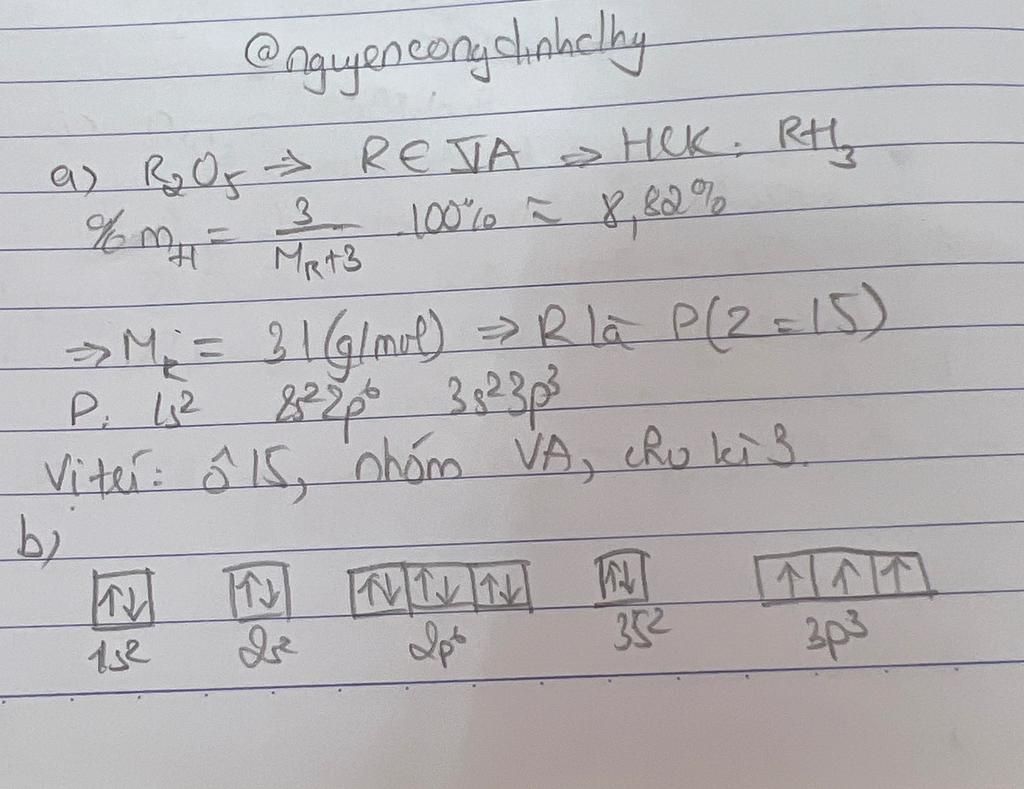 @nguyencongdinhclhy
a) R₂O₅ ⇒ R ∈ VA ⇒ HCK: RH₃
%m_H = 3/(M_R+3) . 100% = 8,82%
⇒ M_R = 31 (g/mol) ⇒ R là P (Z=15)
P: 1s² 2s²2p⁶ 3s²3p³
Vị trí: ô 15, nhóm VA, chu kì 3.
b)
↑↓ ↑↓ ↑↓ ↑↓ ↑↓ ↑↓ ↑ ↑ ↑
1s² 2s² 2p⁶ 3s² 3p³